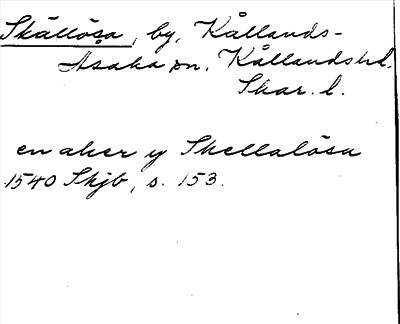 Skällösa, by, Kållands-
Åsaka sn, Kållands hd.
Skar. l.
en aker y Skellalösa
1540 Skjb, s. 153.